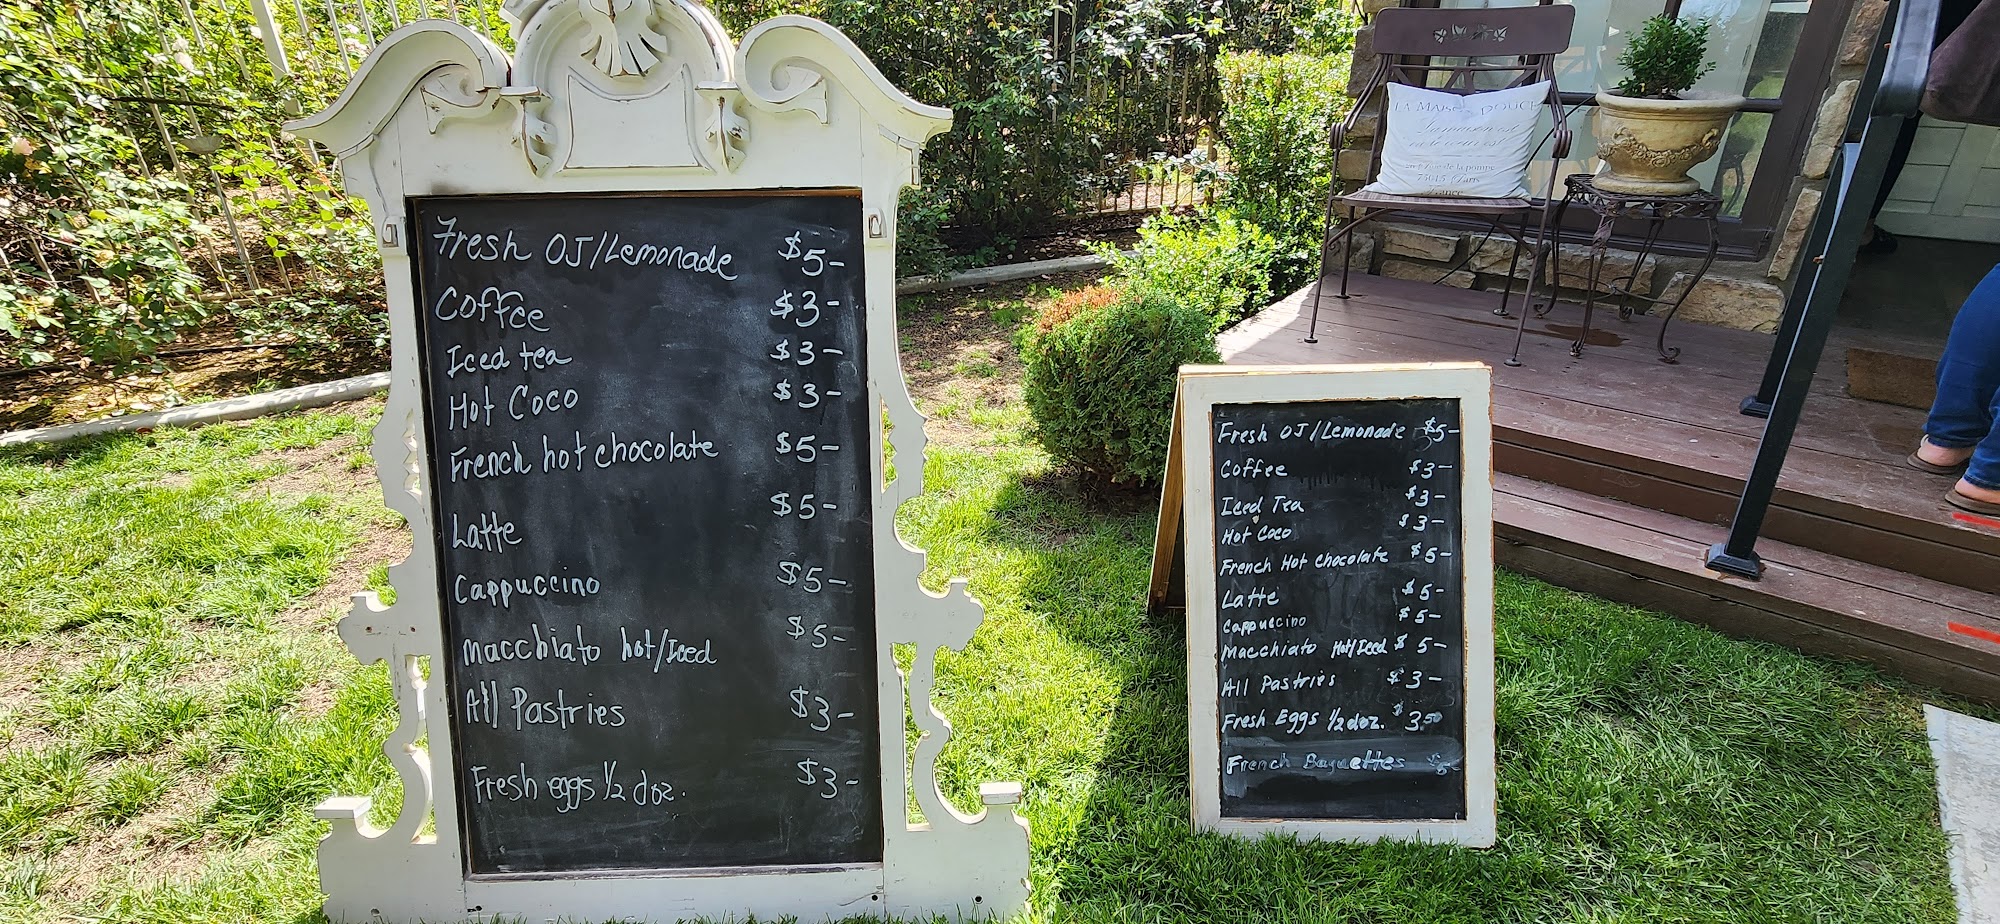 Fresh OJ/Lemonade $5-
Coffee $3-
Iced tea $3-
Hot Coco $3-
French hot chocolate $5-
Latte $5-
Cappuccino $5-
macchiato hot/Iced $5-
All Pastries $3-
Fresh eggs 1/2 doz. $3-
LA MAISON DOUCE
75015 Paris
France
Fresh OJ/Lemonade $5-
Coffee $3-
Iced Tea $3-
Hot Coco $3-
French Hot chocolate $5-
Latte $5-
Cappuccino $5-
Macchiato Hot/Iced $5-
All Pastries $3-
Fresh Eggs 1/2 doz. $3.50
French Baguettes